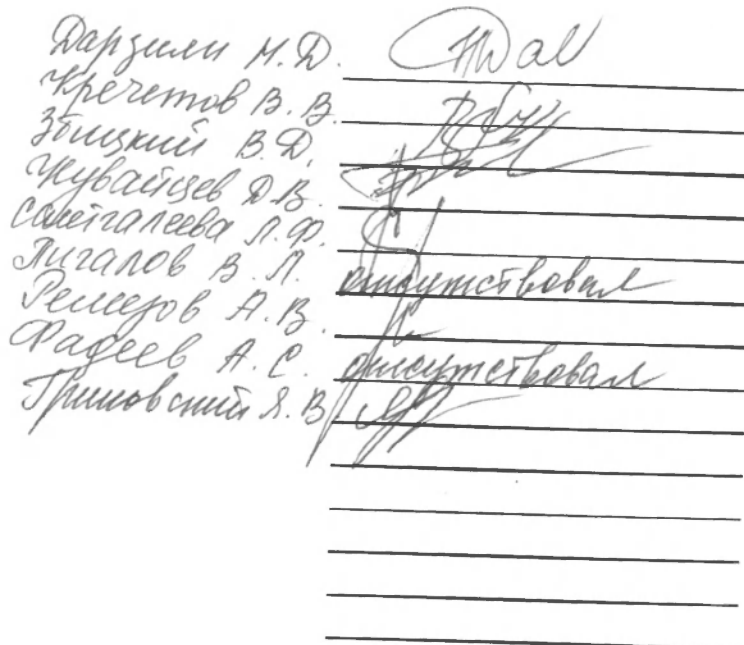 Дарзили М.Д.
Кречетов В.В.
Збицкий В.Д.
Жувайцев Д.В.
Саетгалеева Л.Ф.
Пигалов В.Л. отсутствовал
Ремезов А.В.
Фадеев А.С. отсутствовал
Гриновский Я.В.